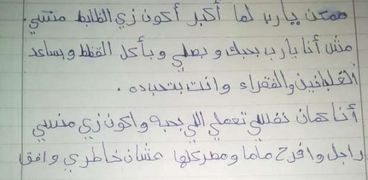 ممكن يارب لما أكبر أكون زي الظابط منسي.
مش أنا يارب بحبك وبصلي وبأكل القطط وبساعد
الغلبانين والفقراء وانت بتحب ده.
أنا كمان نفسي تعملي اللي بحبه واكون زي منسي
راجل وافرح ماما ومطر كلها عشان خاطري وافق